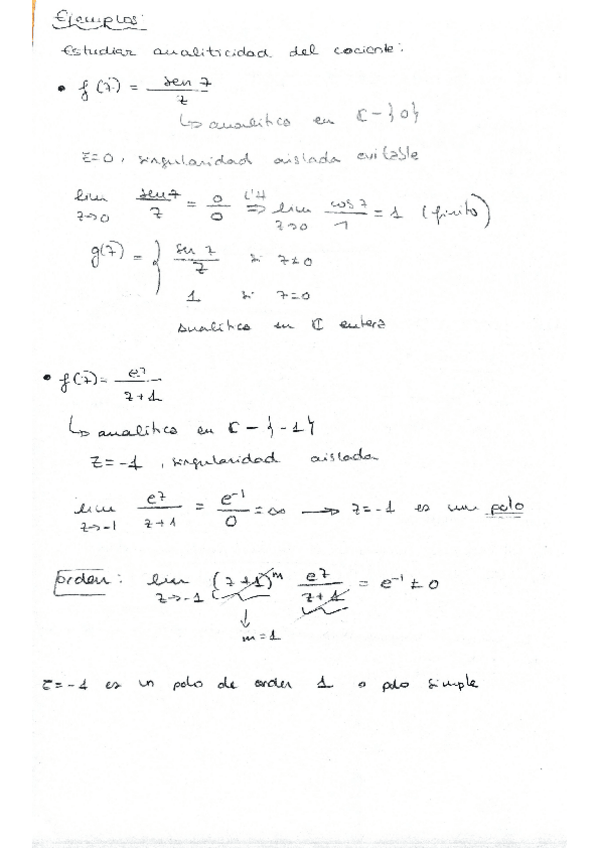 Ejemplos:
Estudiar analiticidad del cociente:
• f(z) = sen z / z
↳ analítica en ℂ - {0}
z=0, singularidad aislada evitable
lim z→0 sen z / z = 0/0 L'H ⇒ lim z→0 cos z / 1 = 1 (finito)
g(z) = { sen z / z si z≠0
1 si z=0
analítica en ℂ entera
• f(z) = e^z / z+1
↳ analítica en ℂ - {-1}
z=-1, singularidad aislada
lim z→-1 e^z / z+1 = e^-1 / 0 = ∞ → z=-1 es un polo
orden: lim z→-1 (z+1)^m e^z / z+1 = e^-1 ≠ 0
↓
m=1
z=-1 es un polo de orden 1 o polo simple